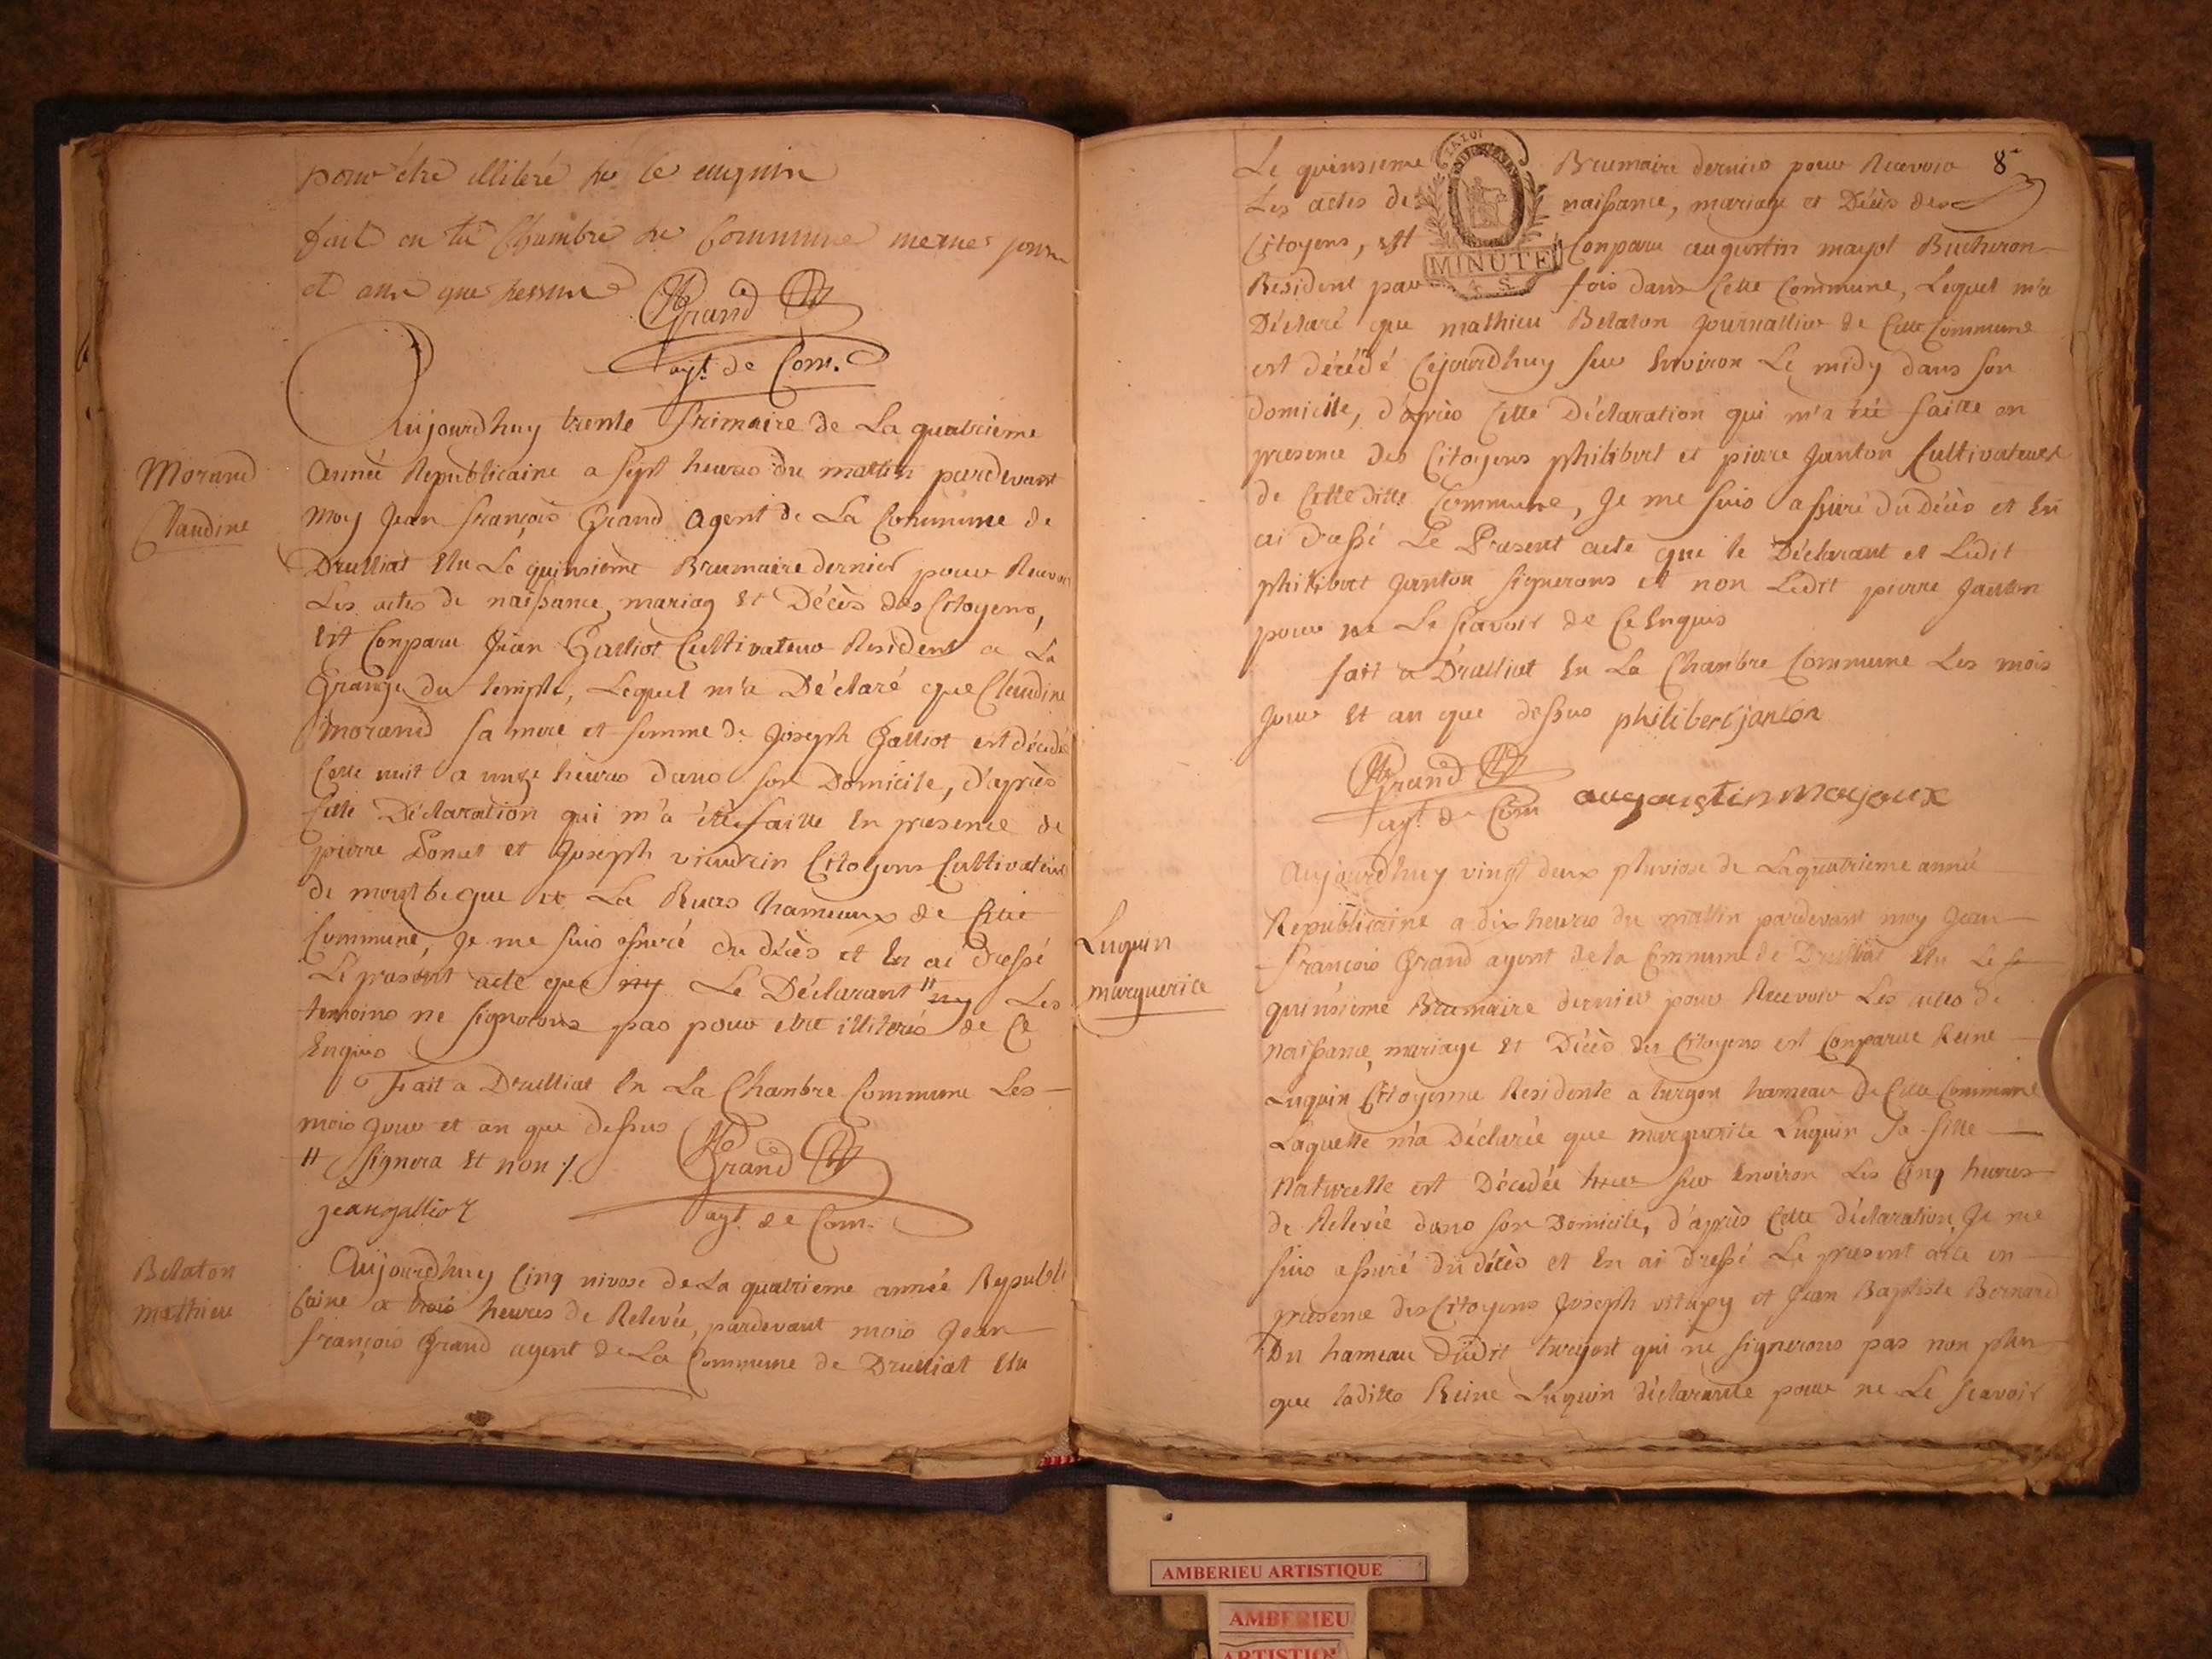 pour être illiteré de ce enquire
fait en la Chambre de Commune meme jour
et an que dessus Grand
agt. de Com.
Aujourdhuy trente frimaire de La quatrieme
Morand
Claudine
année Republicaine a sept heures du mattin pardevant
moy Jean françois Grand agent de La Commune de
Drulliat Elu Le quinsieme Brumaire dernier pour Recevoir
Les actes de naissance, mariag Et Décès des Citoyens,
Est Conparu Jean Galliot Cultivateur Resident a La
Grange du temple, Lequel m'a Déclaré que Claudine
morand sa mere et femme de Joseph Galliot est décédé
Cette nuit a unze heures dans son Domicile, d'après
Cette Déclaration qui m'a été faitte En presence de
pierre Donet et Joseph vieudrin Citoyens Cultivateurs
de montbegue et La Ruas hameaux de Cette
Commune, Je me suis assuré du décès et En ai dressé
Le present acte que ny Le Déclarant // ny Les
temoins ne signerons pas pour etre illiterés de Ce
Enquis
Fait a Drulliat En La Chanbre Commune Les
mois jour et an que dessus
// signera Et non ./. Grand
jeangalliot agt. de Com.
Belaton
mathieu
Aujourdhuy Cinq nivose de La quatrieme année Republi
Caine a trois heures de Relevée, pardevant mois Jean
françois Grand agent de La Commune de Drulliat Elu
8
Le quinsieme Brumaire dernier pour Recevoir
Les actes de naissance, mariage et Décès des
Citoyens, Est Conparu augustin mayot Bucheron
Resident par fois dans Cette Commune, Lequel m'a
LA LOI
MINUTE
Déclaré que mathieu Belaton Journallier de Cette Commune
est décédé Cejourdhuy sur Environ Le midy dans son
domicile, d'après Cette Déclaration qui m'a été faitte en
presence des Citoyens philibert et pierre Janton Cultivateurs
de Cette ditte Commune, Je me suis assuré du décès et En
ai dressé Le Present acte que le Déclarant et Ledit
philibert Janton signerons et non Ledit pierre Janton
pour ne Le scavoir de Ce Enquis
fait a Drulliat En La Chanbre Commune Les mois
Jour Et an que dessus philibert janton
Grand
agt. de Com augustin mojoux
Aujourdhuy vingt deux pluviose de La quatrieme année
Luquin
marguerite
Republicaine a dix heures du mattin pardevant moy Jean
françois Grand agent de la Commune de Drulliat Elu Le
quinsieme Brumaire dernier pour Recevoir Les actes de
naissance, mariage Et Décès des Citoyens est Comparue Reine
Luquin Citoyenne Residente a turgon hameau de Cette Commune
Laquelle m'a Déclarée que marguerite Luquin sa fille
naturelle est Décédée hier sur Environ Les Cinq heures
de Relevée dans son Domicile, d'après Cette déclaration, Je me
suis assuré du décès et En ai dressé Le present acte en
presence des Citoyens Joseph et Jean Baptiste Bernard
Du hameau dudit qui ne signerons pas non plus
que laditte Reine Luquin déclarante pour ne Le scavoir
AMBERIEU ARTISTIQUE
AMBERIEU
ARTISTIQUE